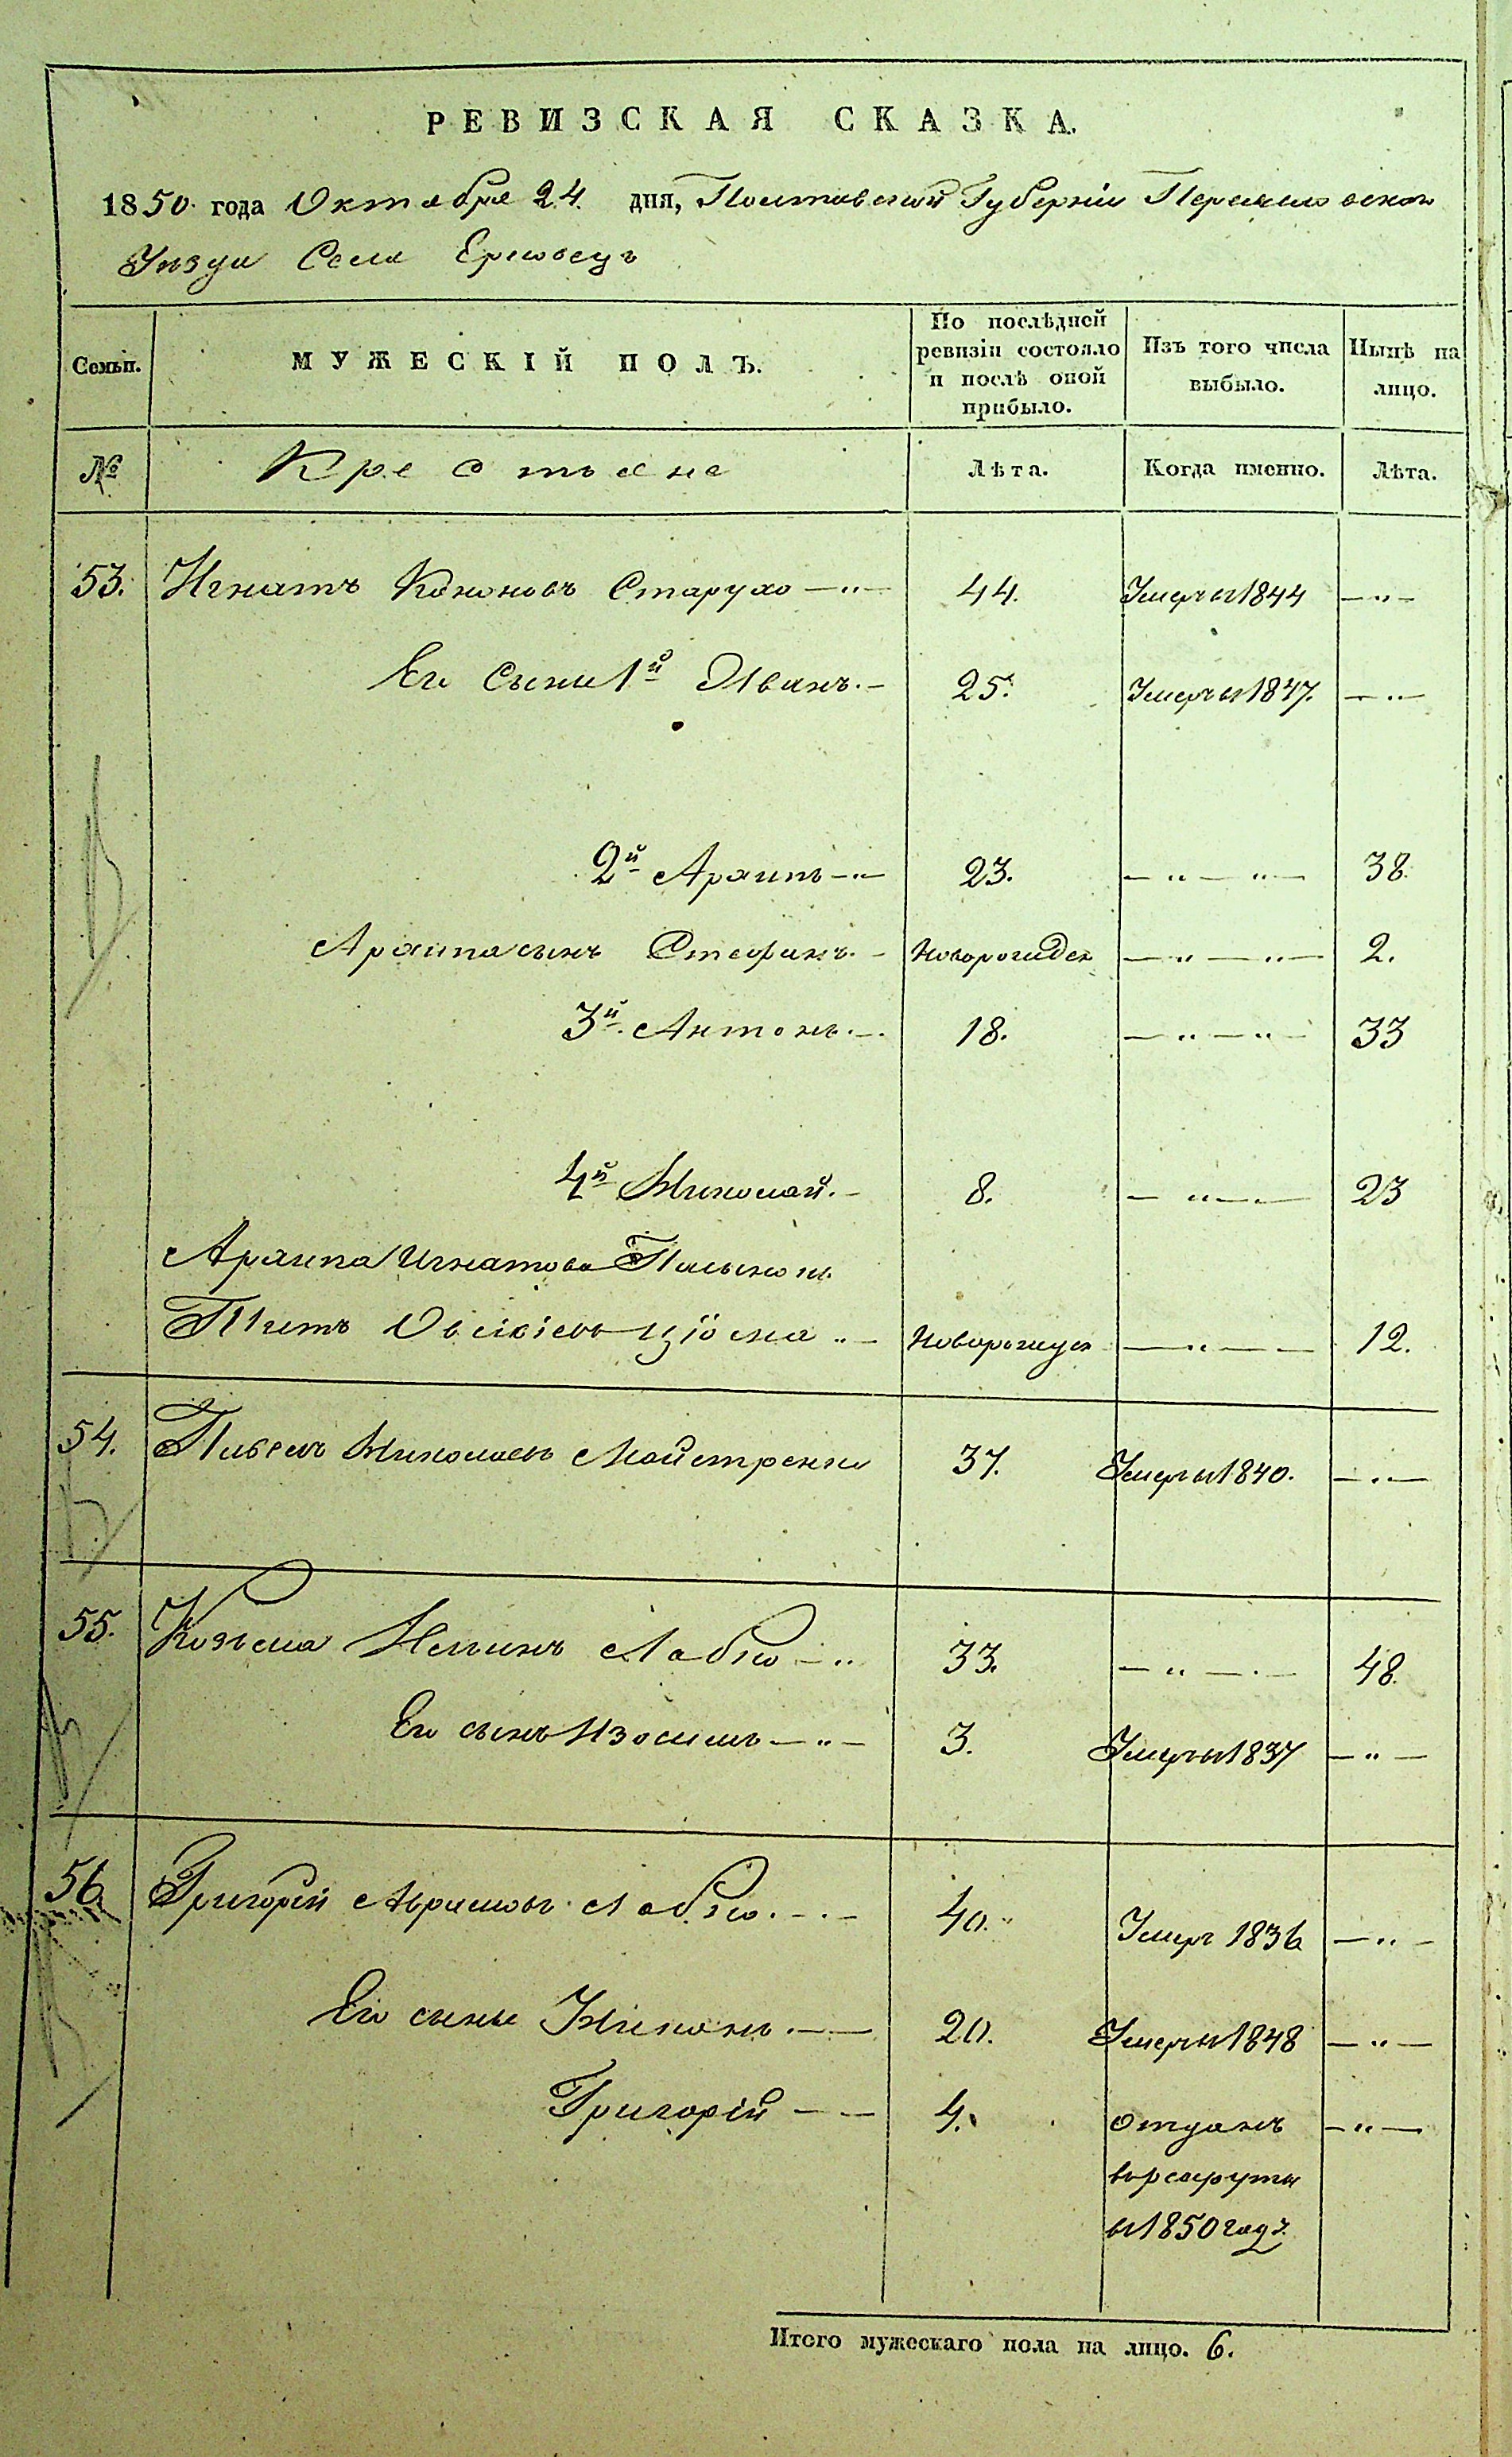 РЕВИЗСКАЯ СКАЗКА.
1850 года Октября 24. дня, Полтавской Губерніи Переяславской
Уезда Села Ерковецъ
Семьи. МУЖЕСКІЙ ПОЛЪ. По послѣдней ревизіи состояло и послѣ оной прибыло. Изъ того числа выбыло. Нынѣ на лицо.
№ Крестьяне Лѣта. Когда именно. Лѣта.
53. Игнатъ Кононовъ Старухо 44. Умеръ въ 1844
Его Сыны 1й Иванъ. 25. Умеръ въ 1847.
2й Архипъ 23. 38.
Архипа сынъ Стефанъ. Новорожден 2.
3й Антонъ. 18. 33
4й Николай. 8. 23
Архипа Игнатова
Титъ Овсіѣевъ Ціома Новорожден 12.
54. Павелъ Николаевъ Майстренко 37. Умеръ въ 1840.
55. Козьма Лабзю 33. 48.
Его сынъ Изосимъ 3. Умеръ въ 1837
56. Григорій Аврамовъ Лабзю. 40. Умеръ 1836
Его сыны Никонъ. 20. Умеръ въ 1848
Григорій 4. отданъ
въ рекруты
въ 1850 годѣ
Итого мужескаго пола на лицо. 6.